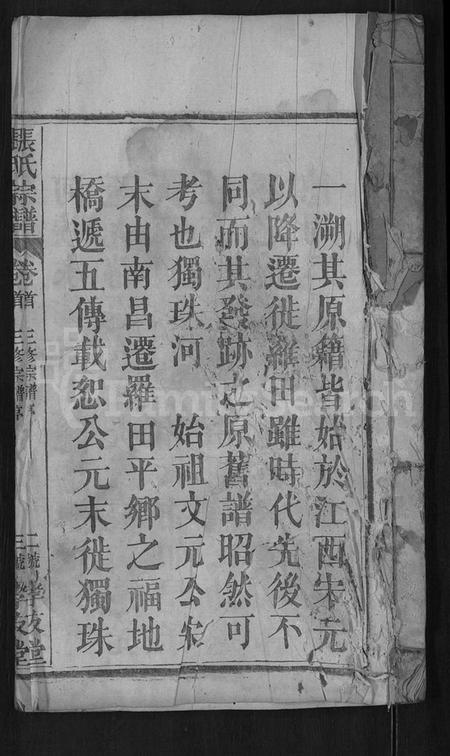 一溯其原籍皆始於江西宋元
以降遷徙羅田雖時代先後不
同而其發跡之原舊譜昭然可
考也獨珠河　始祖文元公宋
末由南昌遷羅田平鄉之福地
橋遞五傳載恕公元末徙獨珠
張氏宗譜
卷首
三修宗譜
FamilySearch